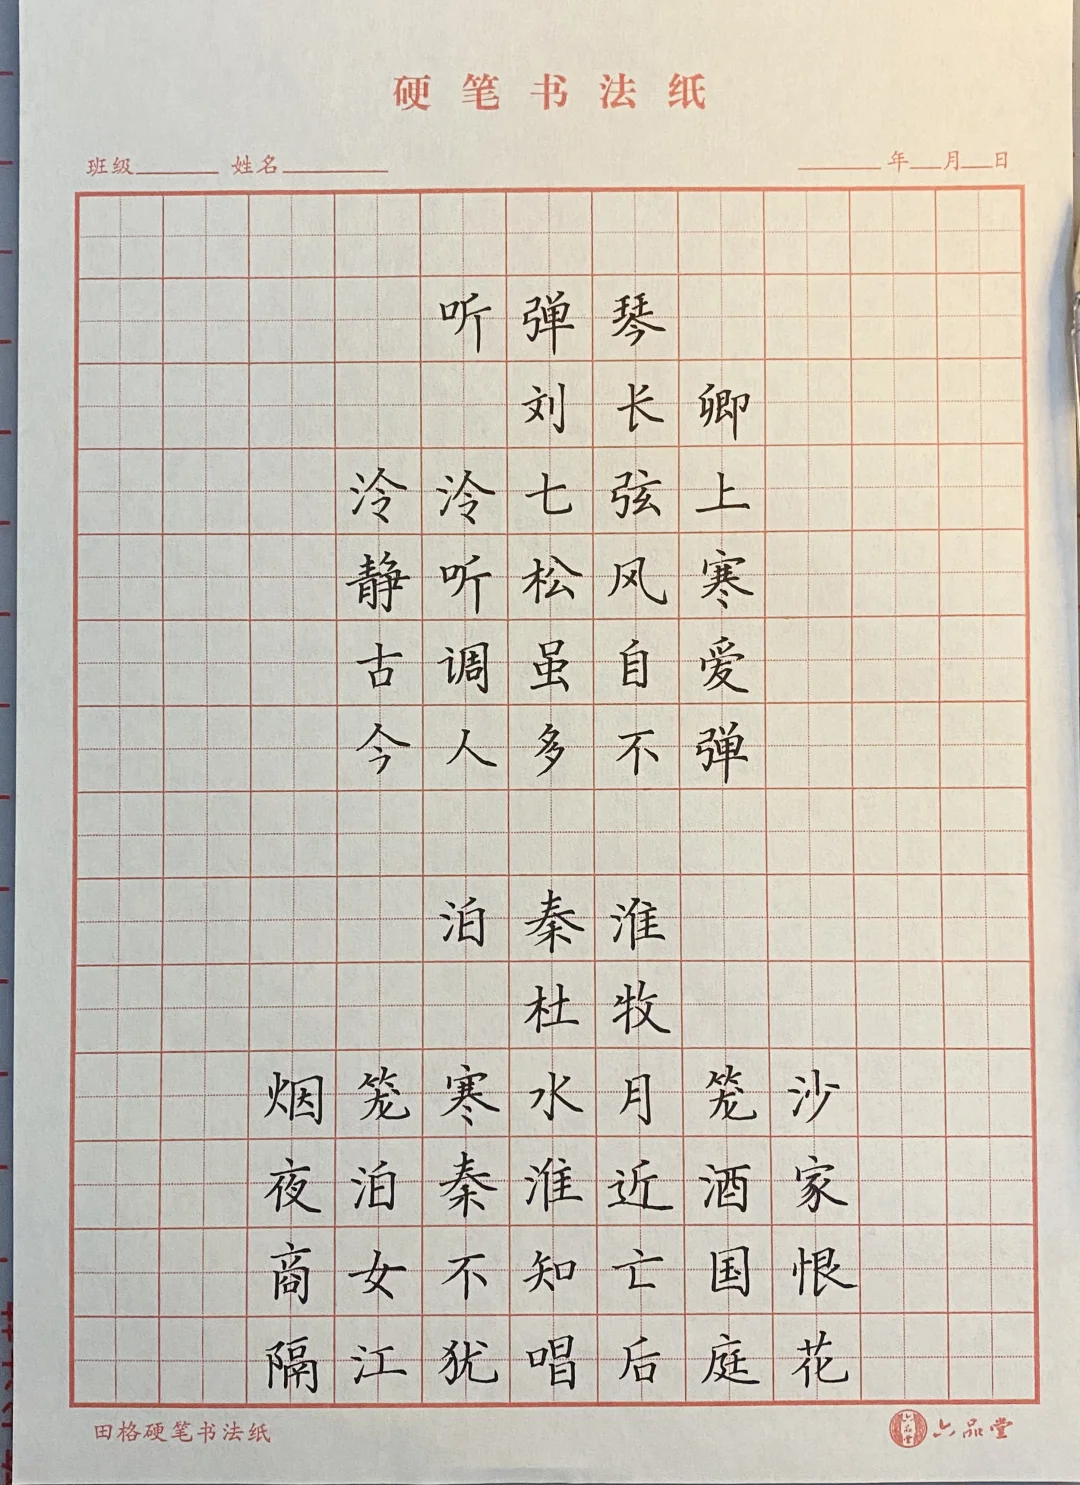 硬笔书法纸
班级 姓名 年 月 日
听弹琴
刘长卿
泠泠七弦上
静听松风寒
古调虽自爱
今人多不弹
泊秦淮
杜牧
烟笼寒水月笼沙
夜泊秦淮近酒家
商女不知亡国恨
隔江犹唱后庭花
田格硬笔书法纸
六品堂 六品堂